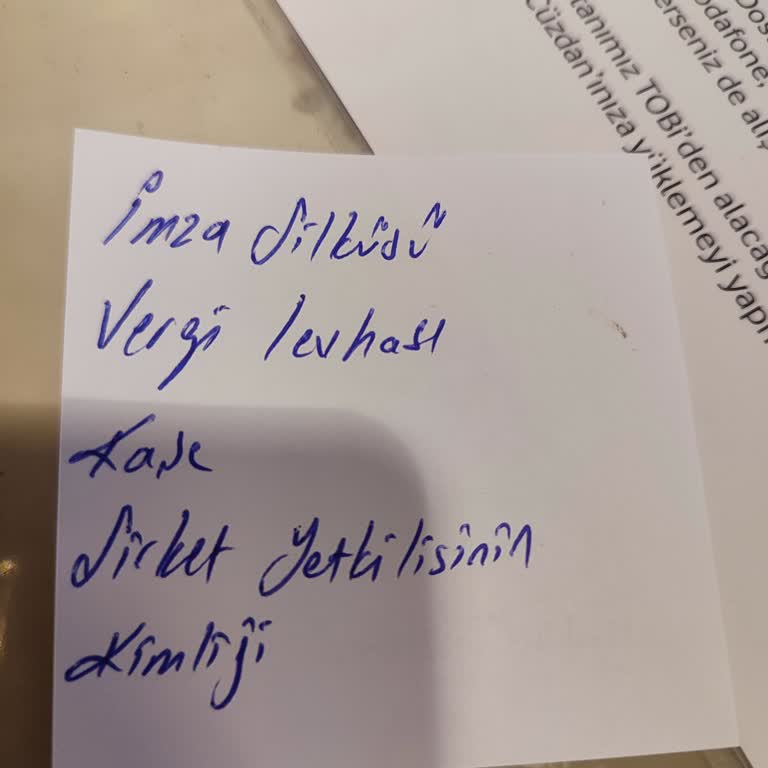 İmza Sirküsü
Vergi levhası
Kaşe
Şirket Yetkilisinin
Kimliği
odafone,
erseniz de alış
tanımız TOBi'den alacağ
Cüzdan'ınıza yüklemeyi yapı